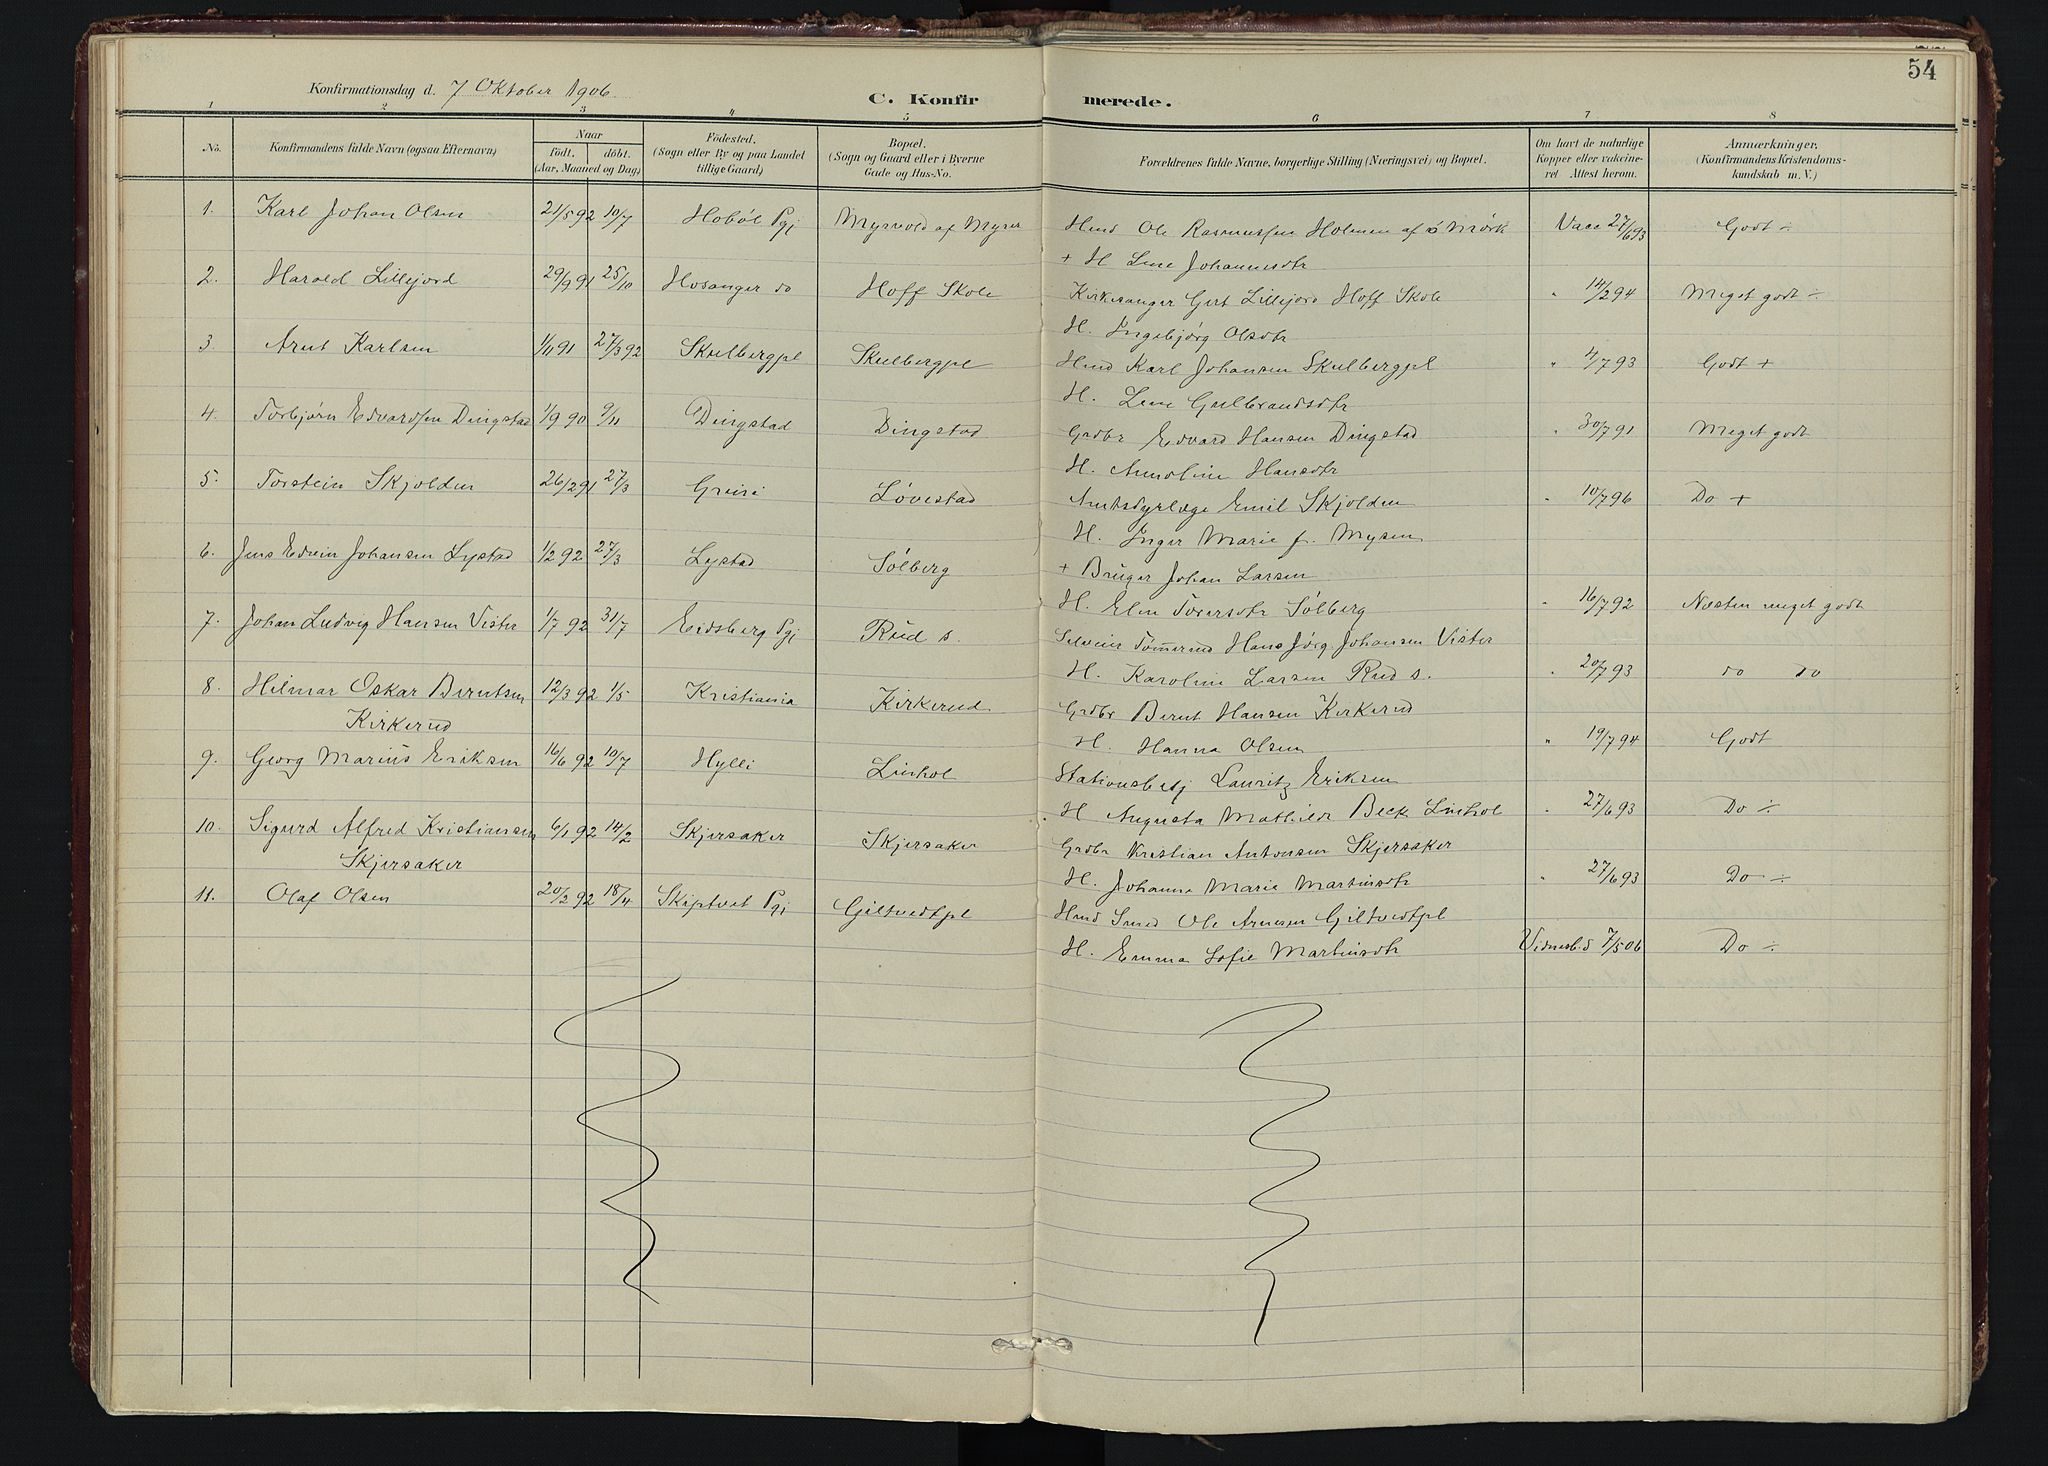 54
Konfirmationsdag d. 7 Oktober 1906
C. Konfir merede.
1 2 3 4 5 6 7 8
No.
Konfirmandens fulde Navn (ogsaa Efternavn)
Naar
födt. döbt.
(Aar, Maaned og Dag)
Födested.
(Sogn eller By og paa Landet
tillige Gaard)
Bopæl.
(Sogn og Gaard eller i Byerne
Gade og Hus-No.
Forældrenes fulde Navne, borgerlige Stilling (Næringsvei) og Bopæl.
Om havt de naturlige
Kopper eller vakcine-
ret Attest herom.
Anmærkninger,
(Konfirmandens Kristendoms-
kundskab m. V.)
1. Karl Johan Olsen 21/5 92 10/7 Hobøl Pgj Myrvold af Myrer Hmd Ole Rasmussen Holmen af Mörk Vacc 27/6 93 Godt ÷
+ H Lene Johannesdtr
2. Harald Lillejord 29/9 91 25/10 Hosanger do Hoff Skole Kirkesanger Gert Lillejord Hoff Skole " 14/2 94 Meget godt ÷
H. Ingebjörg Olsdtr
3 Arnt Karlsen 1/11 91 27/3 92 Skulbergpl Skulbergpl Hmd Karl Johansen Skulbergpl " 4/7 93 Godt +
H. Lene Gulbrandsdtr
4. Torbjørn Edvardsen Dingstad 1/9 90 9/11 Dingstad Dingstad Grdbr Edvard Hansen Dingstad " 30/7 91 Meget godt
H. Annoline Hansdtr
5. Torstein Skjolden 26/2 91 27/3 Løvestad Amtsdyrlæge Emil Skjolden " 10/7 96 Do +
H. Inger Marie f. Mysen
6. Jens Edvin Johansen Lystad 1/2 92 27/3 Lystad Sølberg + Bruger Johan Larsen
H. Elen Torersdtr Sølberg " 16/7 92 Næsten meget godt
7. Johan Ludvig Hansen Vister 1/7 92 31/7 Eidsberg Pgj Rud s. Selveier Tömmermd Hans Jörg. Johansen Vister
H. Karoline Larsen Rud s. " 20/7 93 do do
8. Hilmar Oskar Berntsen 12/3 92 1/5 Kristiania Kirkerud Grdbr Bernt Hansen Kirkerud
Kirkerud
H. Hanna Olsen " 19/7 94 Godt
9. Georg Marius Eriksen 16/6 92 10/7 Hylli Linhol Stationsbetj Lauritz Eriksen
H Augusta Mathilde Beck Linhol " 27/6 93 Do ÷
10. Sigurd Alfred Kristiansen 6/1 92 14/2 Skjersaker Skjersaker Grdbr Kristian Antonsen Skjersaker
Skjersaker
H. Johanne Marie Martinsdtr " 27/6 93 Do ÷
11. Olaf Olsen 20/2 92 18/4 Skiptvet Pgj Giltvedtpl Hmd Smed Ole Arnesen Giltvedtpl
H. Emma Sofie Martinsdtr Vidnesb. d 7/5 06 Do ÷